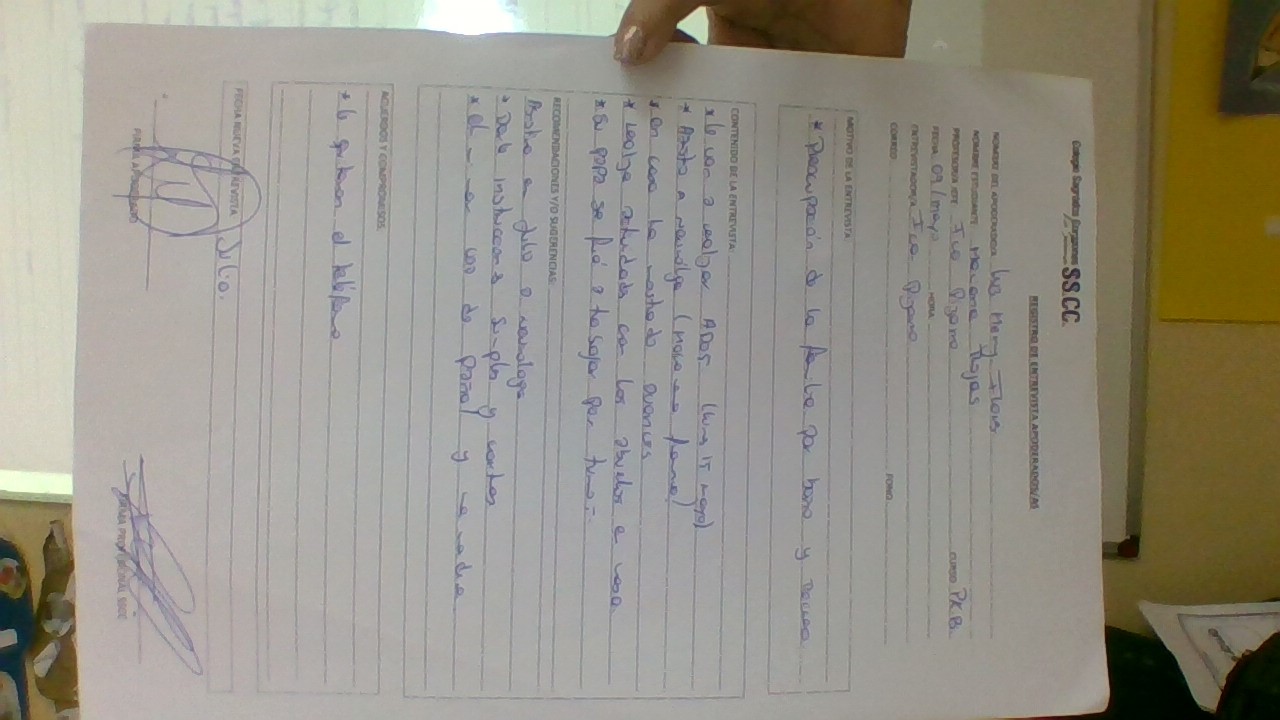 Colegio Sagrados Corazones
SS.CC.
REGISTRO DE ENTREVISTA APODERADOS/AS
NOMBRE DEL APODERADO/A
NOMBRE ESTUDIANTE Rojas CURSO PKB
PROFESOR/A JEFE Pizarro
FECHA 09/mayo HORA
ENTREVISTADOR/A Pizarro
CORREO FONO
MOTIVO DE LA ENTREVISTA
* Preocupación de la familia por baño y
CONTENIDO DE LA ENTREVISTA:
* Le van a realizar ADOS (lunes 15 mayo)
* Asiste a neurólga
* en casa ha mostrado avances
* realiza actividades con los abuelos e
* Su papá se fué a trabajar por turno.-
RECOMENDACIONES Y/O SUGERENCIAS:
Asistir en Julio a neuróloga
* Darle instrucciones simples y cortas
* el uso de pañal y
ACUERDOS Y COMPROMISOS
* le quitaran el teléfono
FECHA NUEVA ENTREVISTA Julio.
FIRMA APODERADO FIRMA PROFESIONAL SSCC